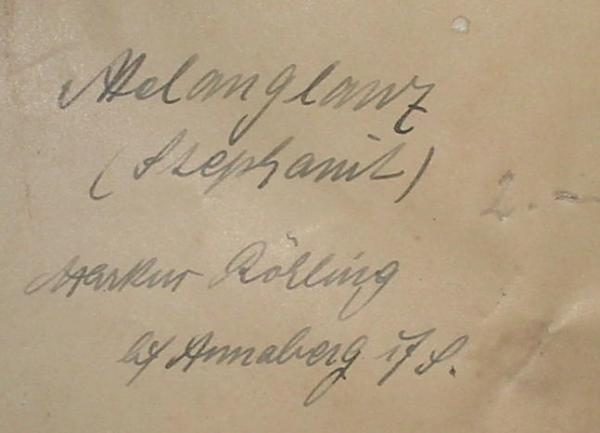 Melanglanz
(Stephanit)
2.–
Markus Röhling
b/ Annaberg i/ S.